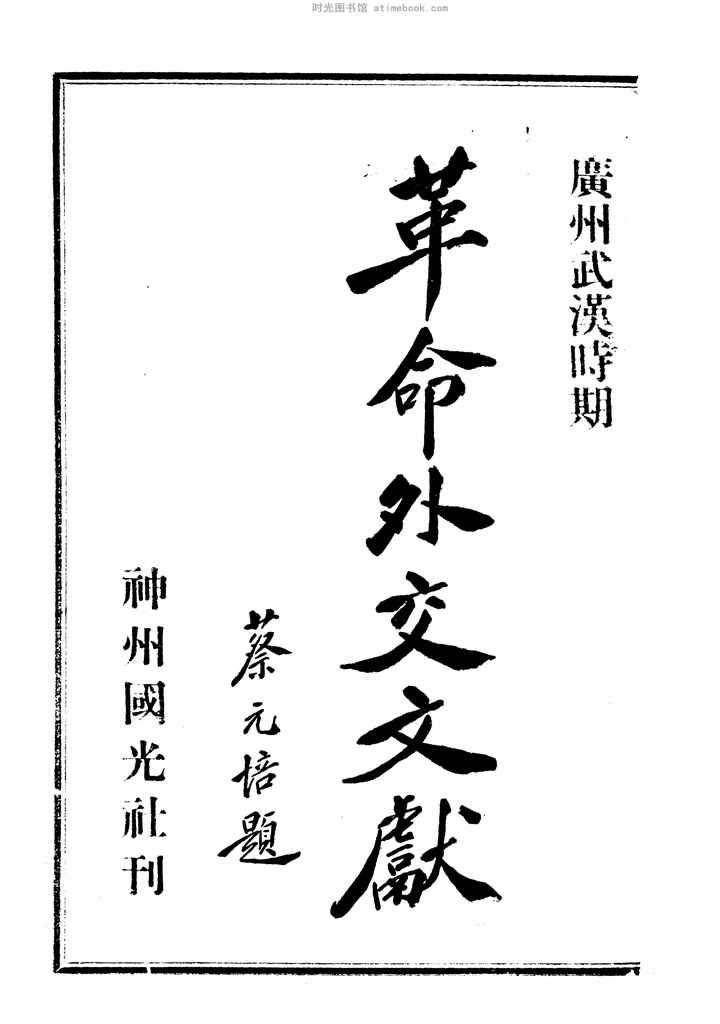 时光图书馆 atimebook.com
廣州武漢時期
革命外交文獻
蔡元培題
神州國光社刊